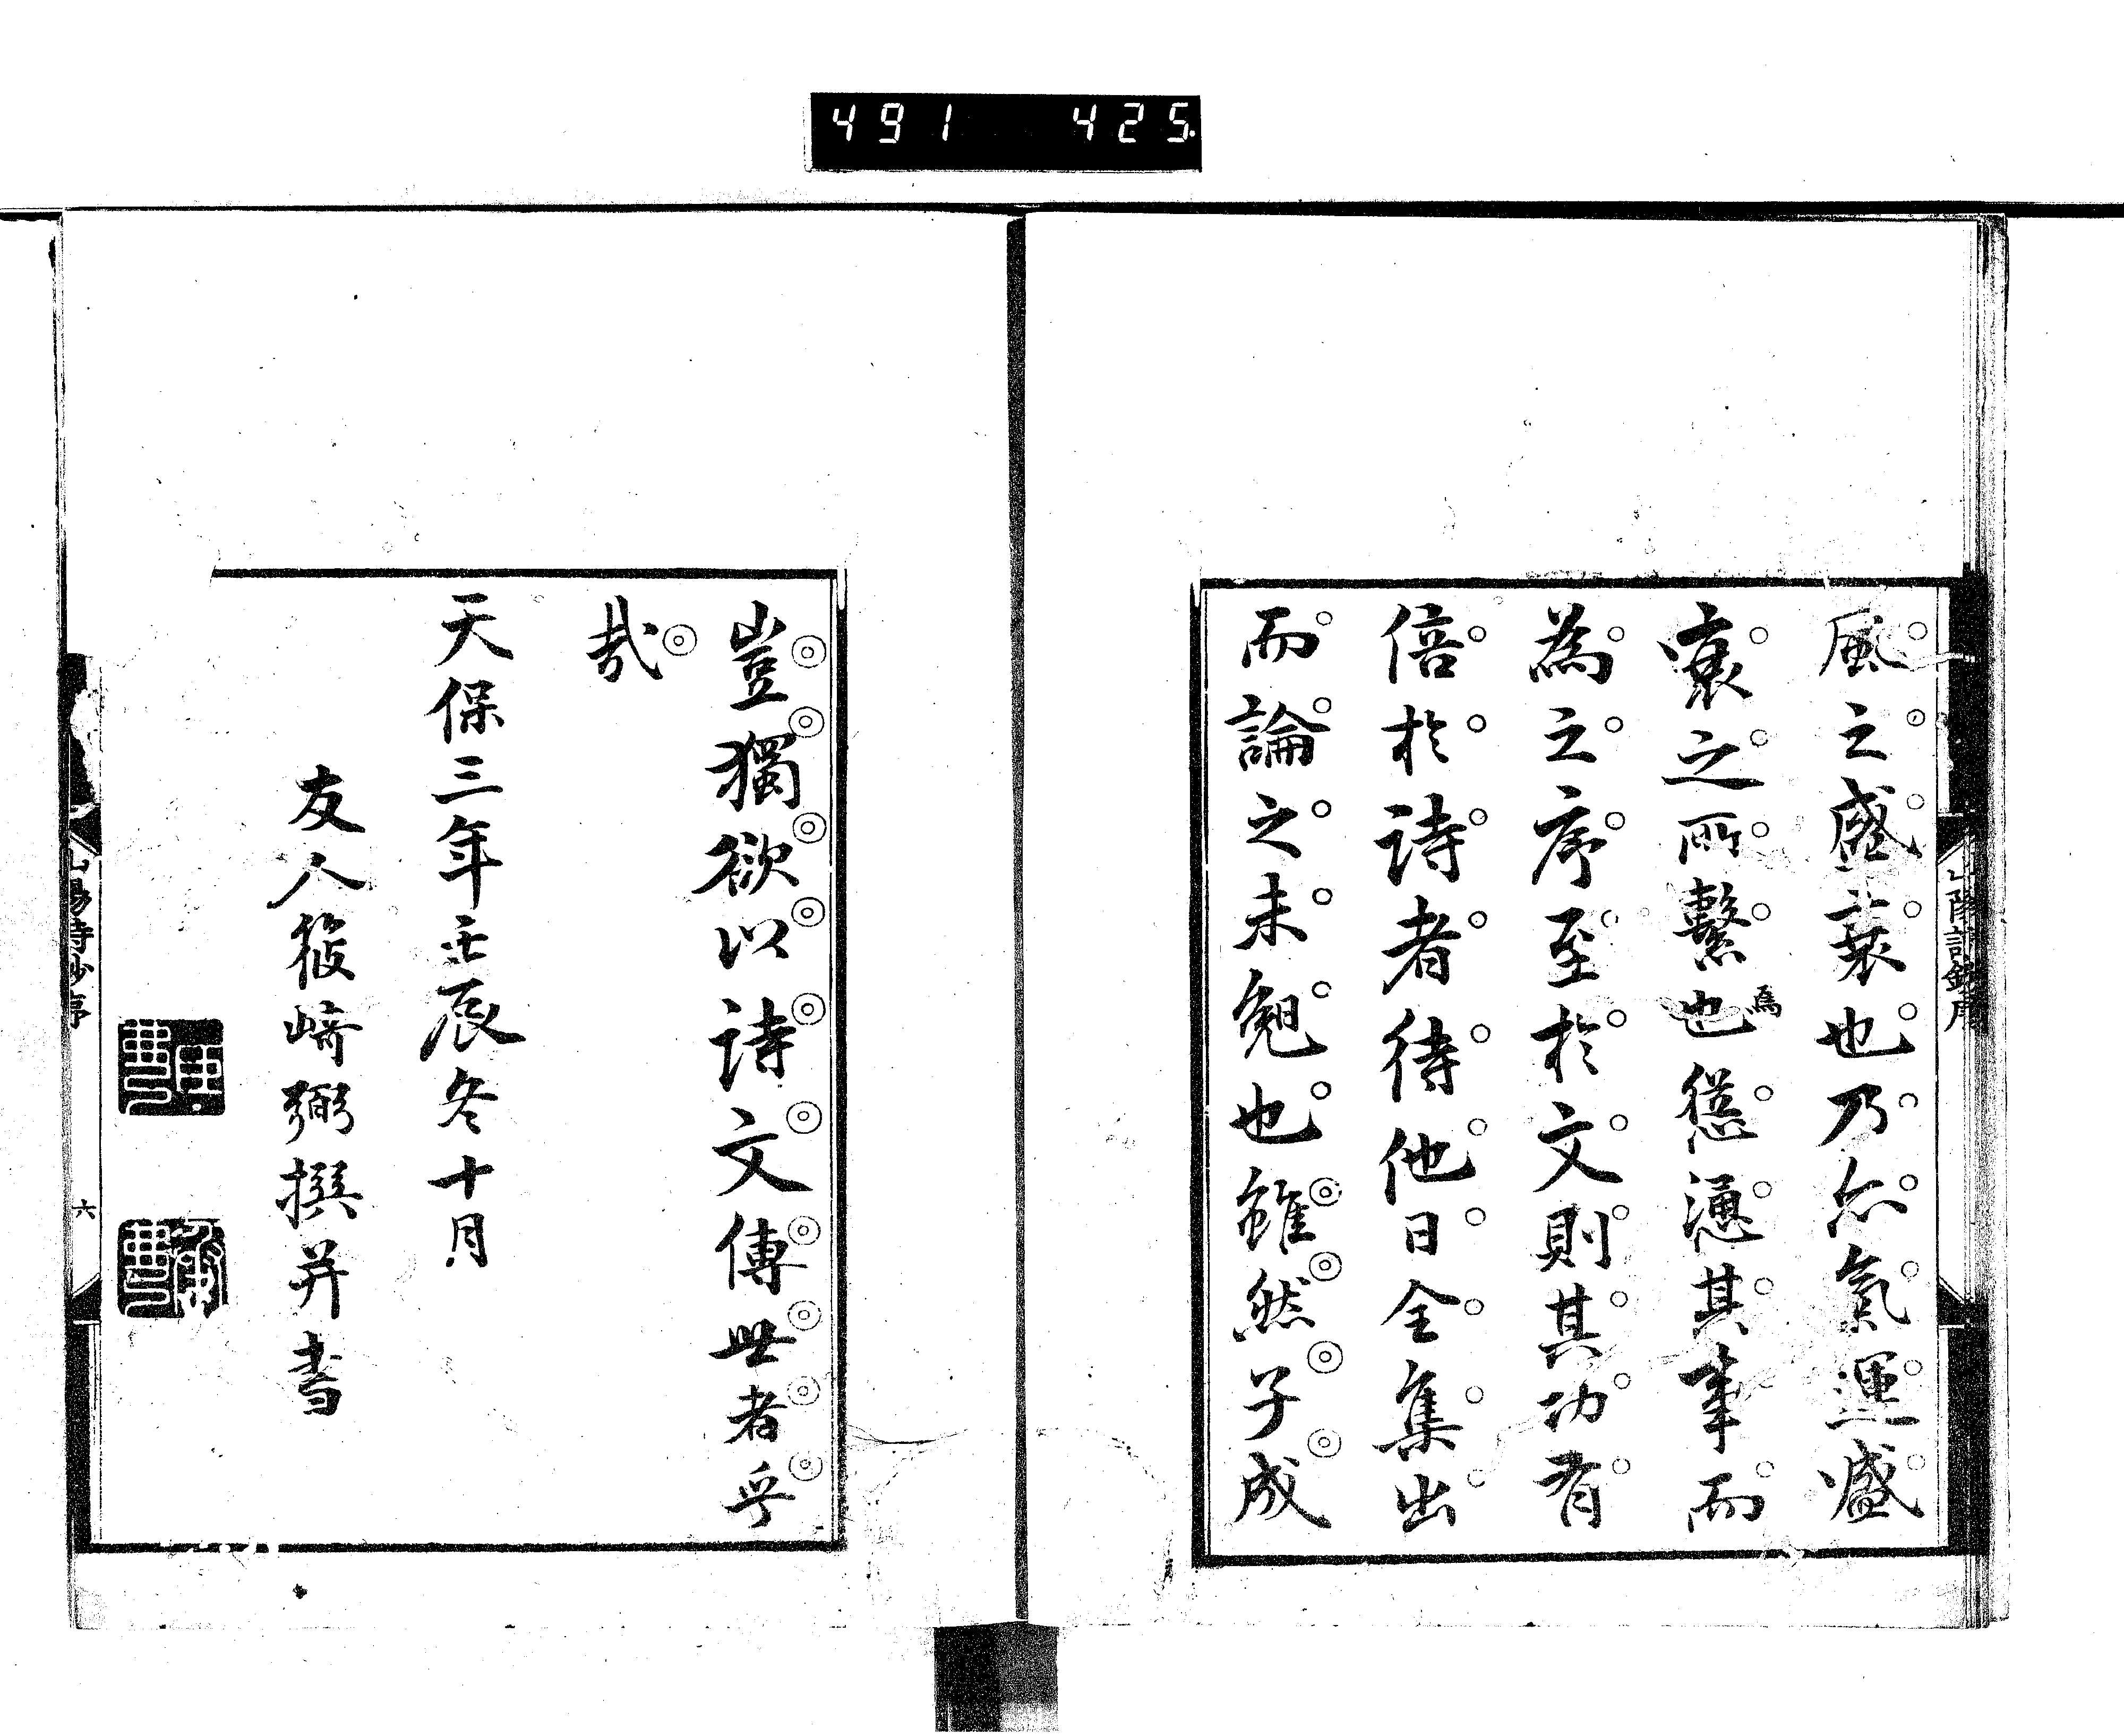 491 425
風之盛衰也乃亦氣運盛
衰之所繫也
焉
慫慂其事而
為之序至於文則其功有
倍於詩者待他日全集出
而論之未晚也雖然子成
豈獨欲以詩文傳世者乎
哉
天保三年壬辰冬十月
友人篠崎弼撰并書
山陽詩鈔序
六